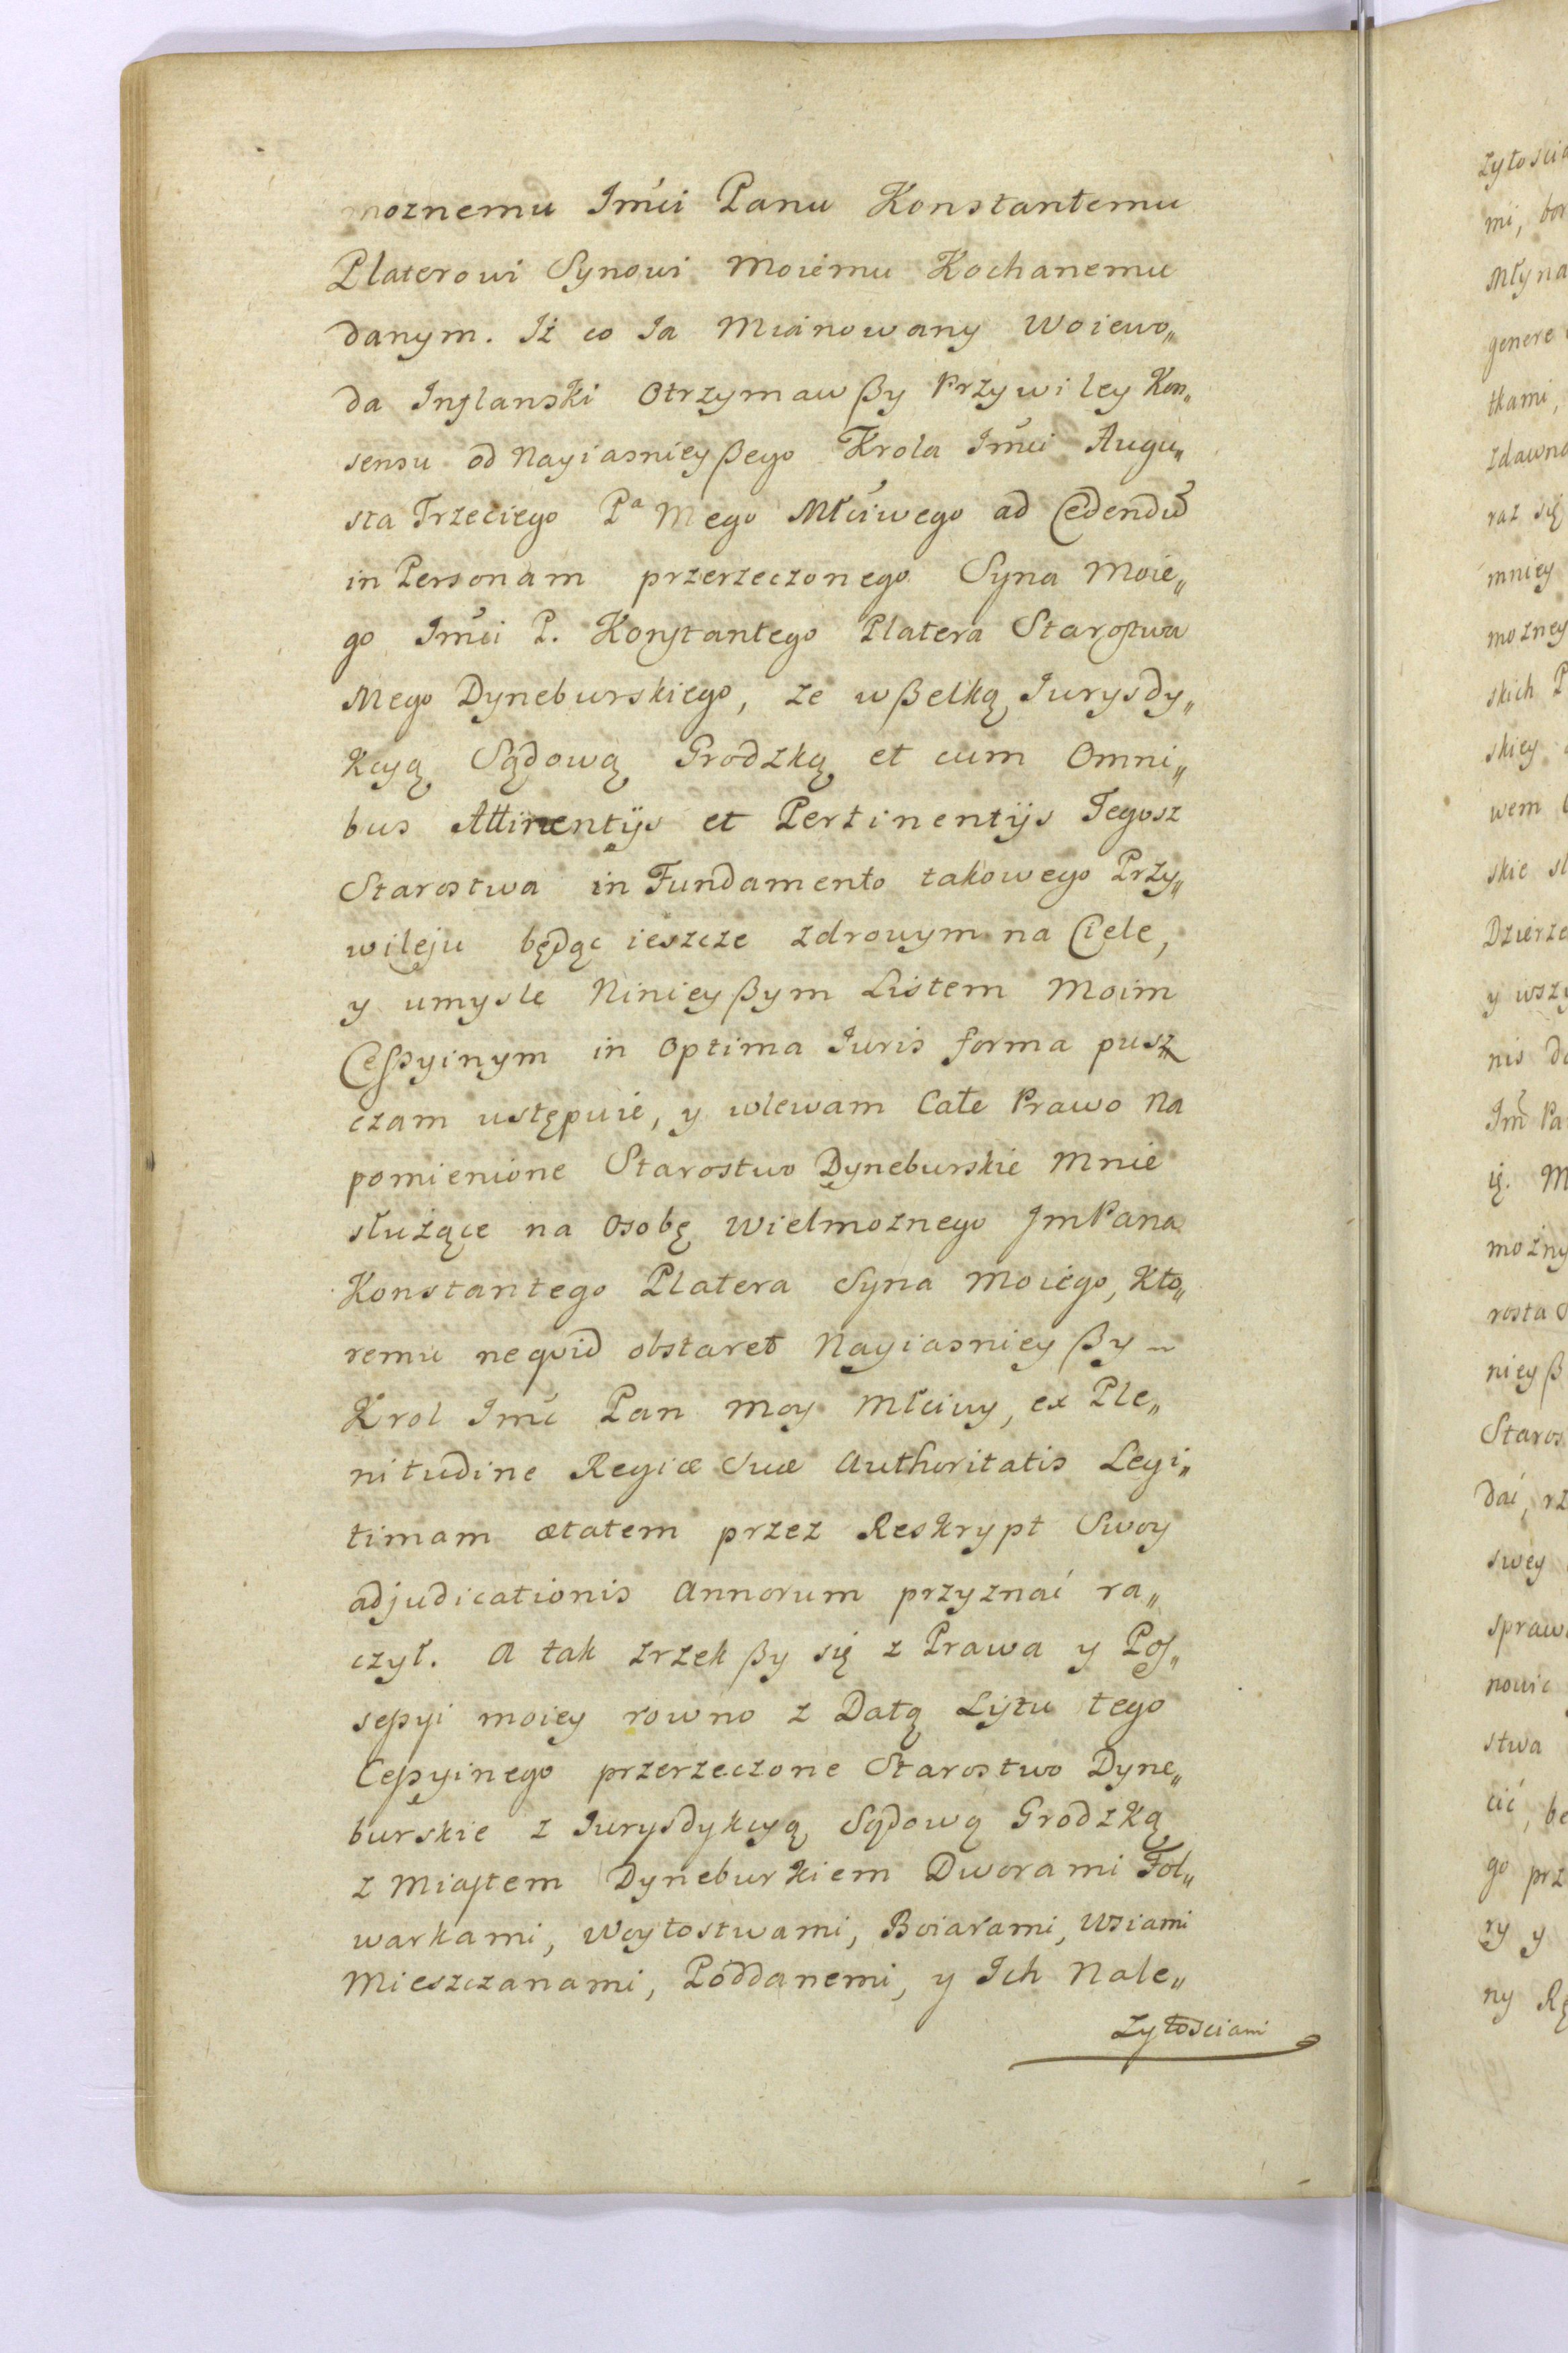 moznemu Jmći Panu Konstantemu
Platerowi Synowi Moiemu Kochanemu
danym. Iż co Ja Mianowany Woiewo„
da Inflanski Otrzymawßy Przywiley Kon„
sensu od Nayiasnieyßego Krola Jmći Augu„
sta Trzeciego Pª Mego Młćiwego ad Cedendū
in Personam przerzeczonego Syna Moie„
go Jmći P. Konstantego Platera Starostwa
Mego Dyneburskiego, ze wßelką Jurysdy„
kcyą Sądową Grodzką et cum Omni„
bus Attinentijs et Pertinentijs Tegosz
Starostwa in Fundamento takowego Przy„
wileju będąc ieszcze zdrowym na Ciele,
y umysle Ninieyßym Listem Moim
Cessyinym in Optima Iuris forma pusz„
czam ustępuie, y wlewam Całe Prawo Na
pomienione Starostwo Dyneburskie Mnie
służące na Osobę Wielmoznego JmPana
Konstantego Platera Syna Moiego, Kto„
remu nequid obstaret Nayiasnieyßy ~
Krol Jmć Pan Moy Młciwy, ex Ple„
nitudine Regiæ Suæ Authoritatis Legi„
timam ætatem przez Reskrypt Swoy
adjudicationis Annorum przyznać ra„
czył. A tak zrzekßy się z Prawa y Pos„
sessyi moiey rowno z Datą Listu tego
Cessyinego przerzeczone Starostwo Dyne„
burskie z Iurysdykcyą Sądową Grodzką
z Miastem Dyneburkiem Dworami Fol„
warkami, Woytostwami, Boiarami, Wsiami
Mieszczanami, Poddanemi, y Ich Nale„
zytosciami
zytoscia
mi, bor
Młyna
genere
tkami,
zdawna
raz się
mniey
mozney
skich P
skiey
wem
skie sl
Dzierze
y wszy
nis do
Jm̃ Pa
ię. M
możny
rosta S
nieyß
Staros
dać, rz
swey
spraw
nowic
stwa
cić, be
go prz
ry y
ny Rę